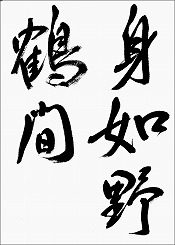 身如野
鶴間